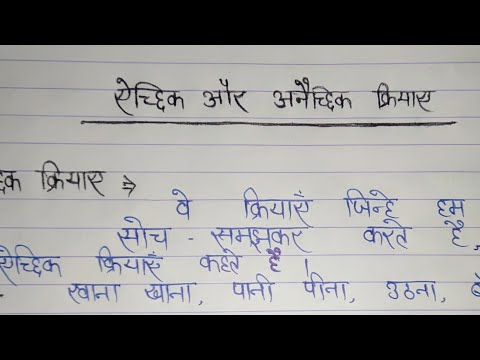 ऐच्छिक और अनैच्छिक क्रियाएं
क्रियाएं ⇒
वे क्रियाएँ जिन्हे हम
सोच - समझकर करते है,
ऐच्छिक क्रियाएँ कहते है।
खाना खाना, पानी पीना, उठना,